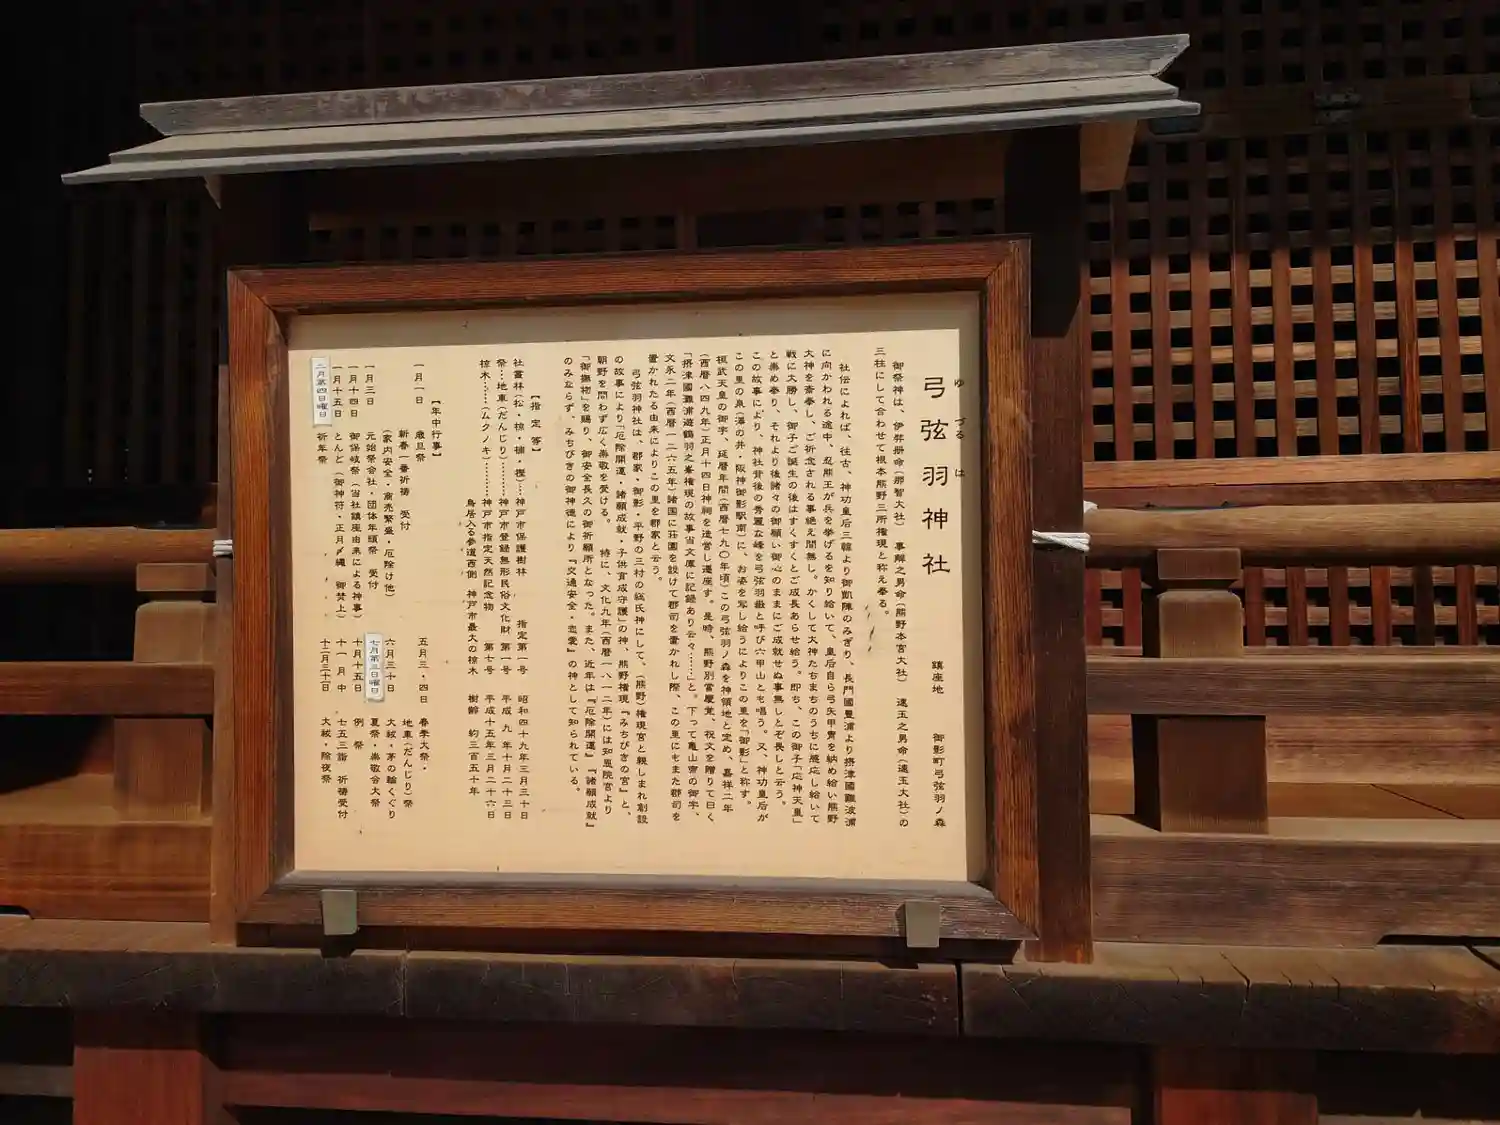 弓弦羽神社
ゆづるは
鎮座地 御影町弓弦羽ノ森
御祭神は、伊弉册命(那智大社) 事解之男命(熊野本宮大社) 速玉之男命(速玉大社)の
三柱にして合わせて根本熊野三所権現と称え奉る。
社伝によれば、往古、神功皇后三韓より御凱陣のみぎり、長門國豊浦より摂津國難波浦
に向かわれる途中、忍熊王が兵を挙げるを知り給いて、皇后自ら弓矢甲冑を納め給い熊野
大神を斎奉し、ご祈念される事絶え間無し。かくして大神たちまちのうちに感応し給いて
戦に大勝し、御子ご誕生の後はすくすくとご成長あらせ給う。即ち、この御子「応神天皇」
と崇め奉り、それより後諸々の御願い御心のままにご成就せぬ事無しとぞ畏しと云う。
この故事により、神社背後の秀麗な峰を弓弦羽嶽と呼び六甲山とも唱う。又、神功皇后が
この里の泉(澤の井・阪神御影駅南)に、お姿を写し給うによりこの里を「御影」と称す。
桓武天皇の御宇、延暦年間(西暦七九〇年頃)この弓弦羽ノ森を神領地と定め、嘉祥二年
(西暦八四九年)正月十四日神祠を造営し遷座す。是時、熊野別當慶覚、祝文を贈りて曰く
「摂津國難浦遊鶴羽之峯権現の故事当文庫に記録あり云々……」と。下って亀山帝の御宇、
文永二年(西暦一二六五年)諸国に荘園を設けて郡司を置かれし際、この里にもまた郡司を
置かれたる由来によりこの里を郡家と云う。
弓弦羽神社は、郡家・御影・平野の三村の総氏神にして、(熊野)権現宮と親しまれ創設
の故事により「厄除開運・諸願成就・子供育成守護」の神、熊野権現『みちびきの宮』と、
朝野を問わず広く崇敬を受ける。 特に、文化九年(西暦一八一二年)には知恩院宮より
「御撫物」を賜り、御安全長久の御祈願所となった。また、近年は『厄除開運』『諸願成就』
のみならず、みちびきの御神徳により『交通安全・恋愛』の神として知られている。
【指定等】
社叢林(松・椋・楠・樫)…神戸市保護樹林 指定第一号 昭和四十九年三月三十日
祭…地車(だんじり)…………神戸市登録無形民俗文化財 第一号 平成 九年十月二十三日
椋木……(ムクノキ)…………神戸市指定天然記念物 第七号 平成十五年三月二十六日
鳥居入る参道西側 神戸市最大の椋木 樹齢 約三百五十年
【年中行事】
一月一日 歳旦祭
新春一番祈祷 受付
(家内安全・商売繁盛・厄除け他)
一月三日 元始祭会社・団体年頭祭 受付
一月十四日 御保岐祭(当社鎮座由来による神事)
一月十五日 とんど(御神符・正月〆縄 御焚上)
二月第四日曜日 祈年祭
五月三・四日 春季大祭・
地車(だんじり)祭
六月三十日 大祓・茅の輪くぐり
七月第三日曜日 夏祭・崇敬会大祭
十月十五日 例 祭
十一月中 七五三詣 祈祷受付
十二月三十一日 大祓・除夜祭